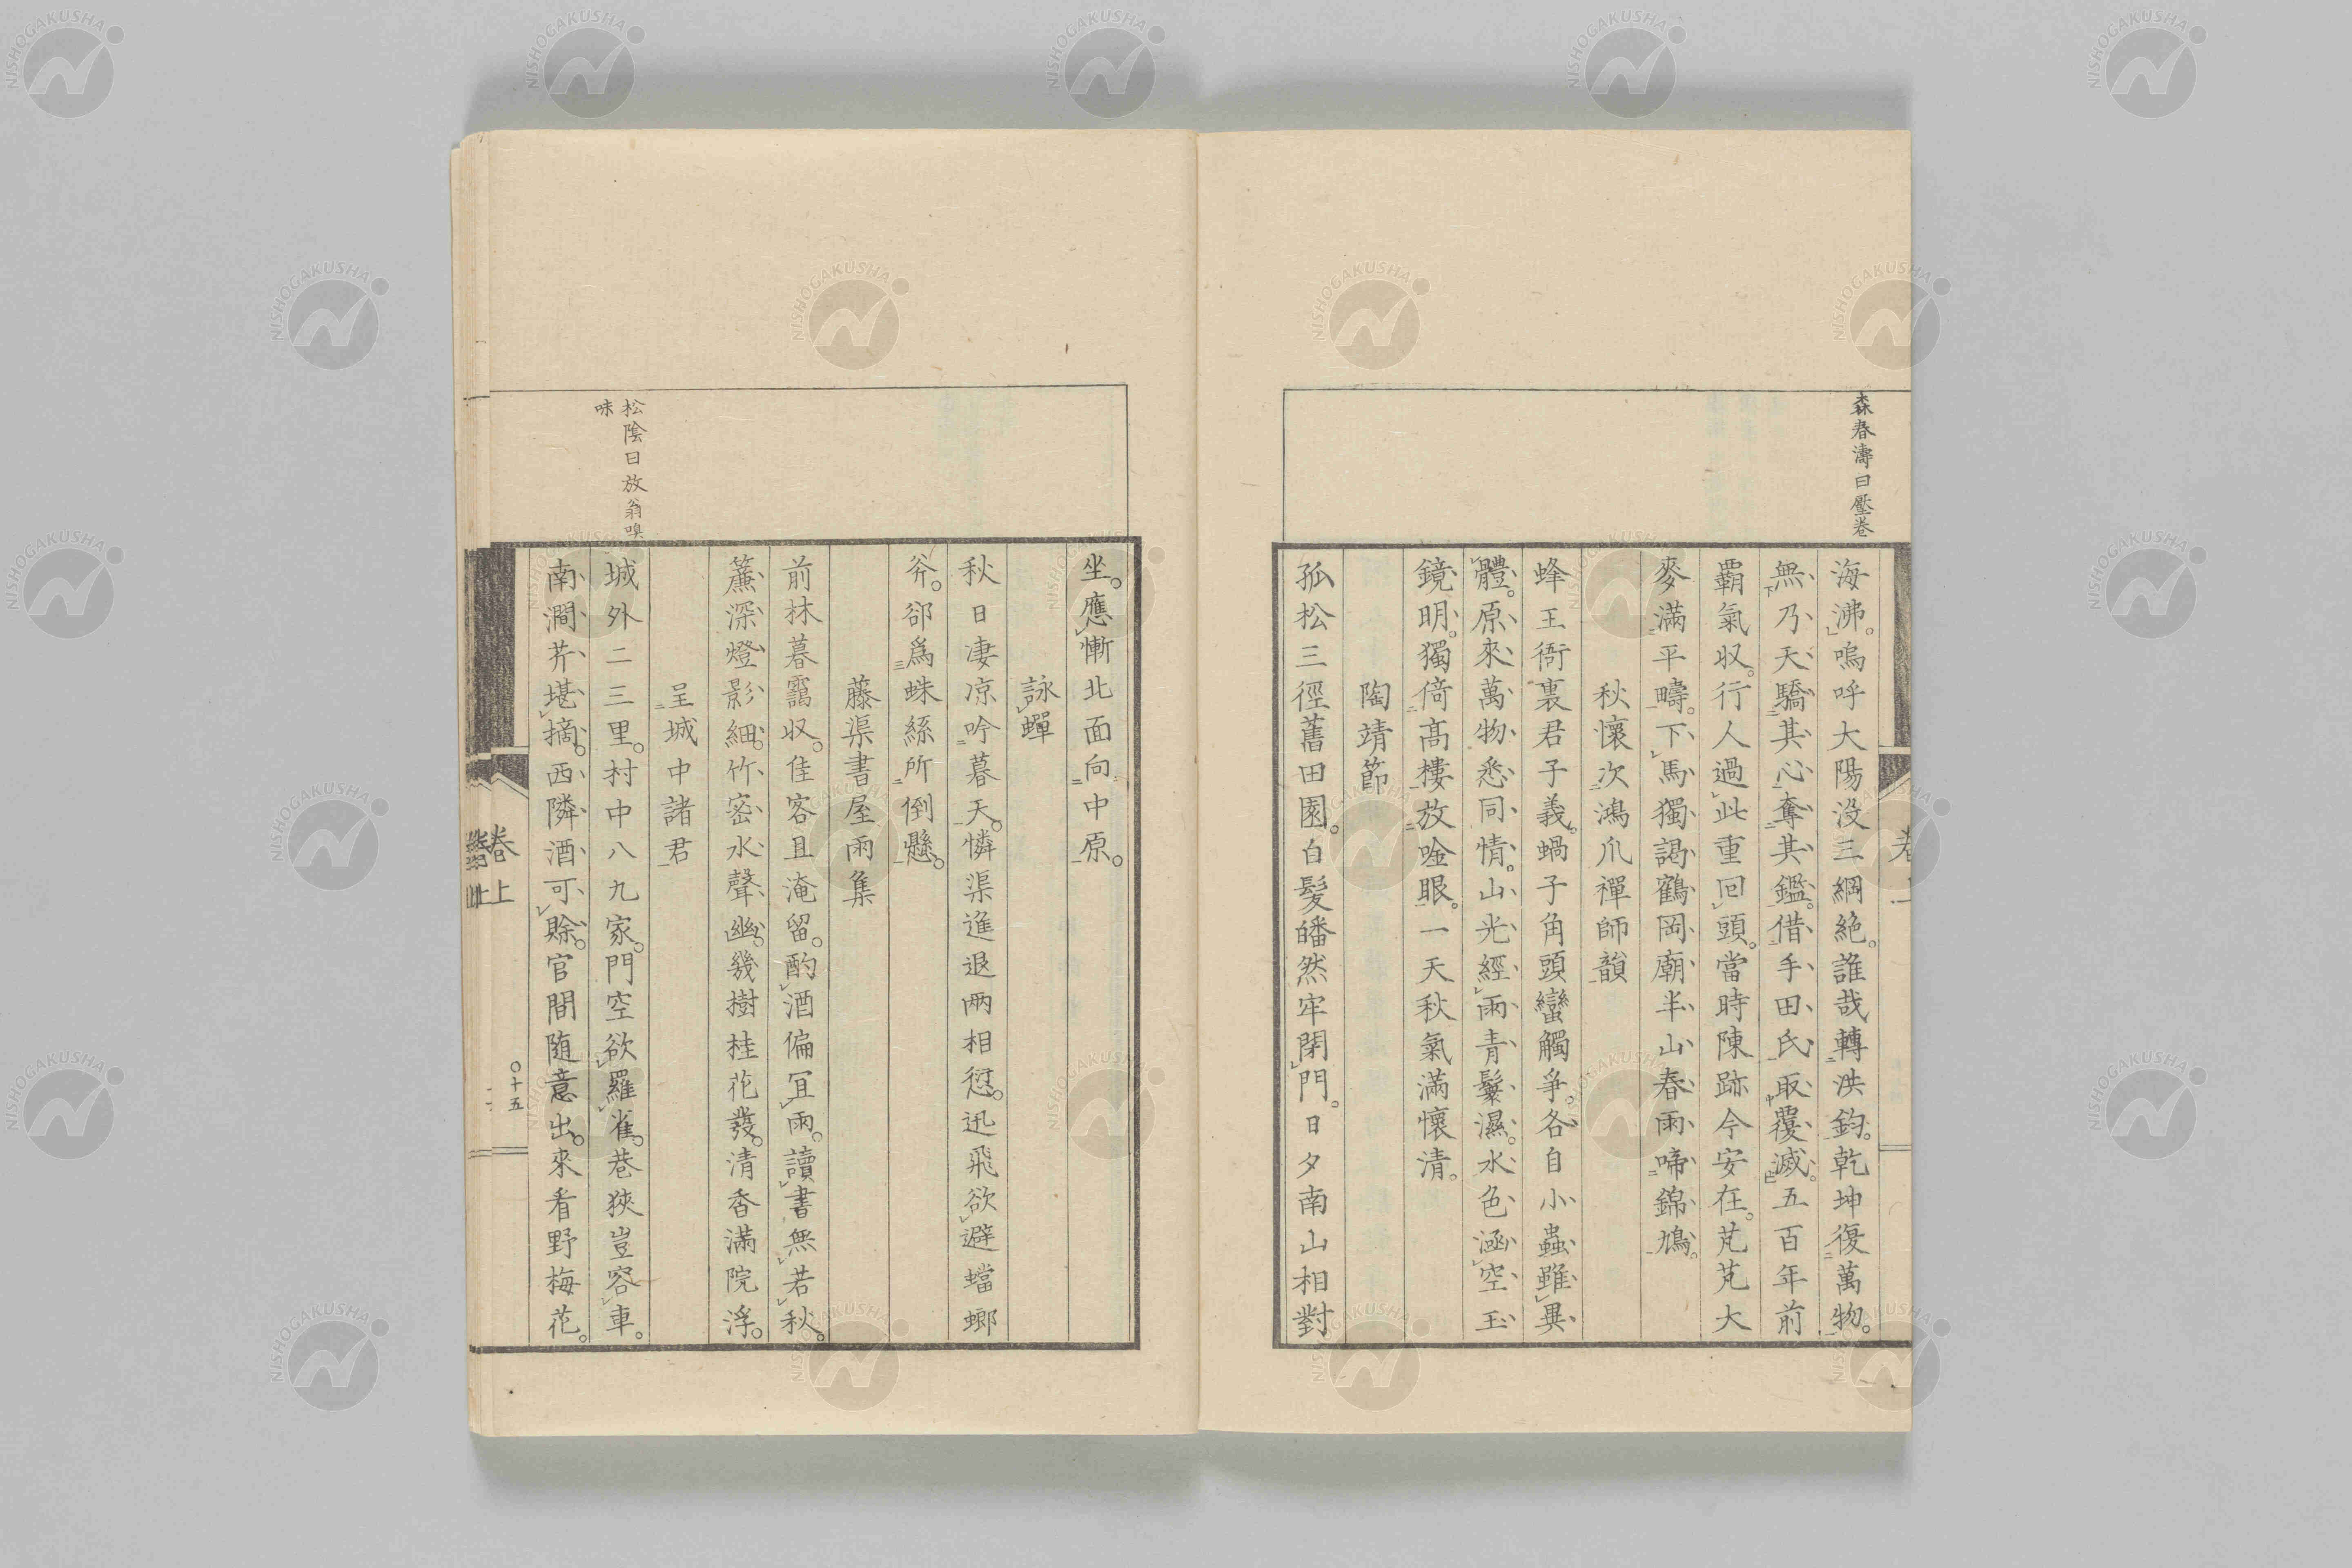 森春濤曰壓卷
海沸。嗚呼大陽没三綱絶。誰哉轉洪鈞。乾坤復萬物。
無乃天驕其心奪其鑑。借手田氏取覆滅。五百年前
覇氣収。行人過此重回頭。當時陳跡今安在。芃芃大
麥滿平疇。下馬獨謁鶴岡廟。半山春雨啼錦鳩。
秋懷次鴻爪禪師韻
蜂王衙裏君子義。蝸子角頭蠻觸爭。各自小蟲雖異
體。原來萬物悉同情。山光經雨青鬟濕。水色涵空玉
鏡明。獨倚高樓放唫眼。一天秋氣滿懷清。
陶靖節
孤松三徑舊田園。白髮皤然牢閉門。日夕南山相對
坐。應慚北面向中原。
詠蟬
秋日凄凉吟暮天。憐渠進退兩相愆。迅飛欲避蟷螂
斧。郤爲蛛絲所倒懸。
藤渠書屋雨集
前林暮靄収。佳客且淹留。酌酒偏冝雨。讀書無若秋。
簾深燈影細。竹密水聲幽。幾樹桂花發。清香滿院浮。
呈城中諸君
松陰曰放翁嗅
味
城外二三里。村中八九家。門空欲羅雀。巷狹豈容車。
南澗芹堪摘。西隣酒可賖。官間随意出。來看野梅花。
卷上
〇十五
NISHOGAKUSHA